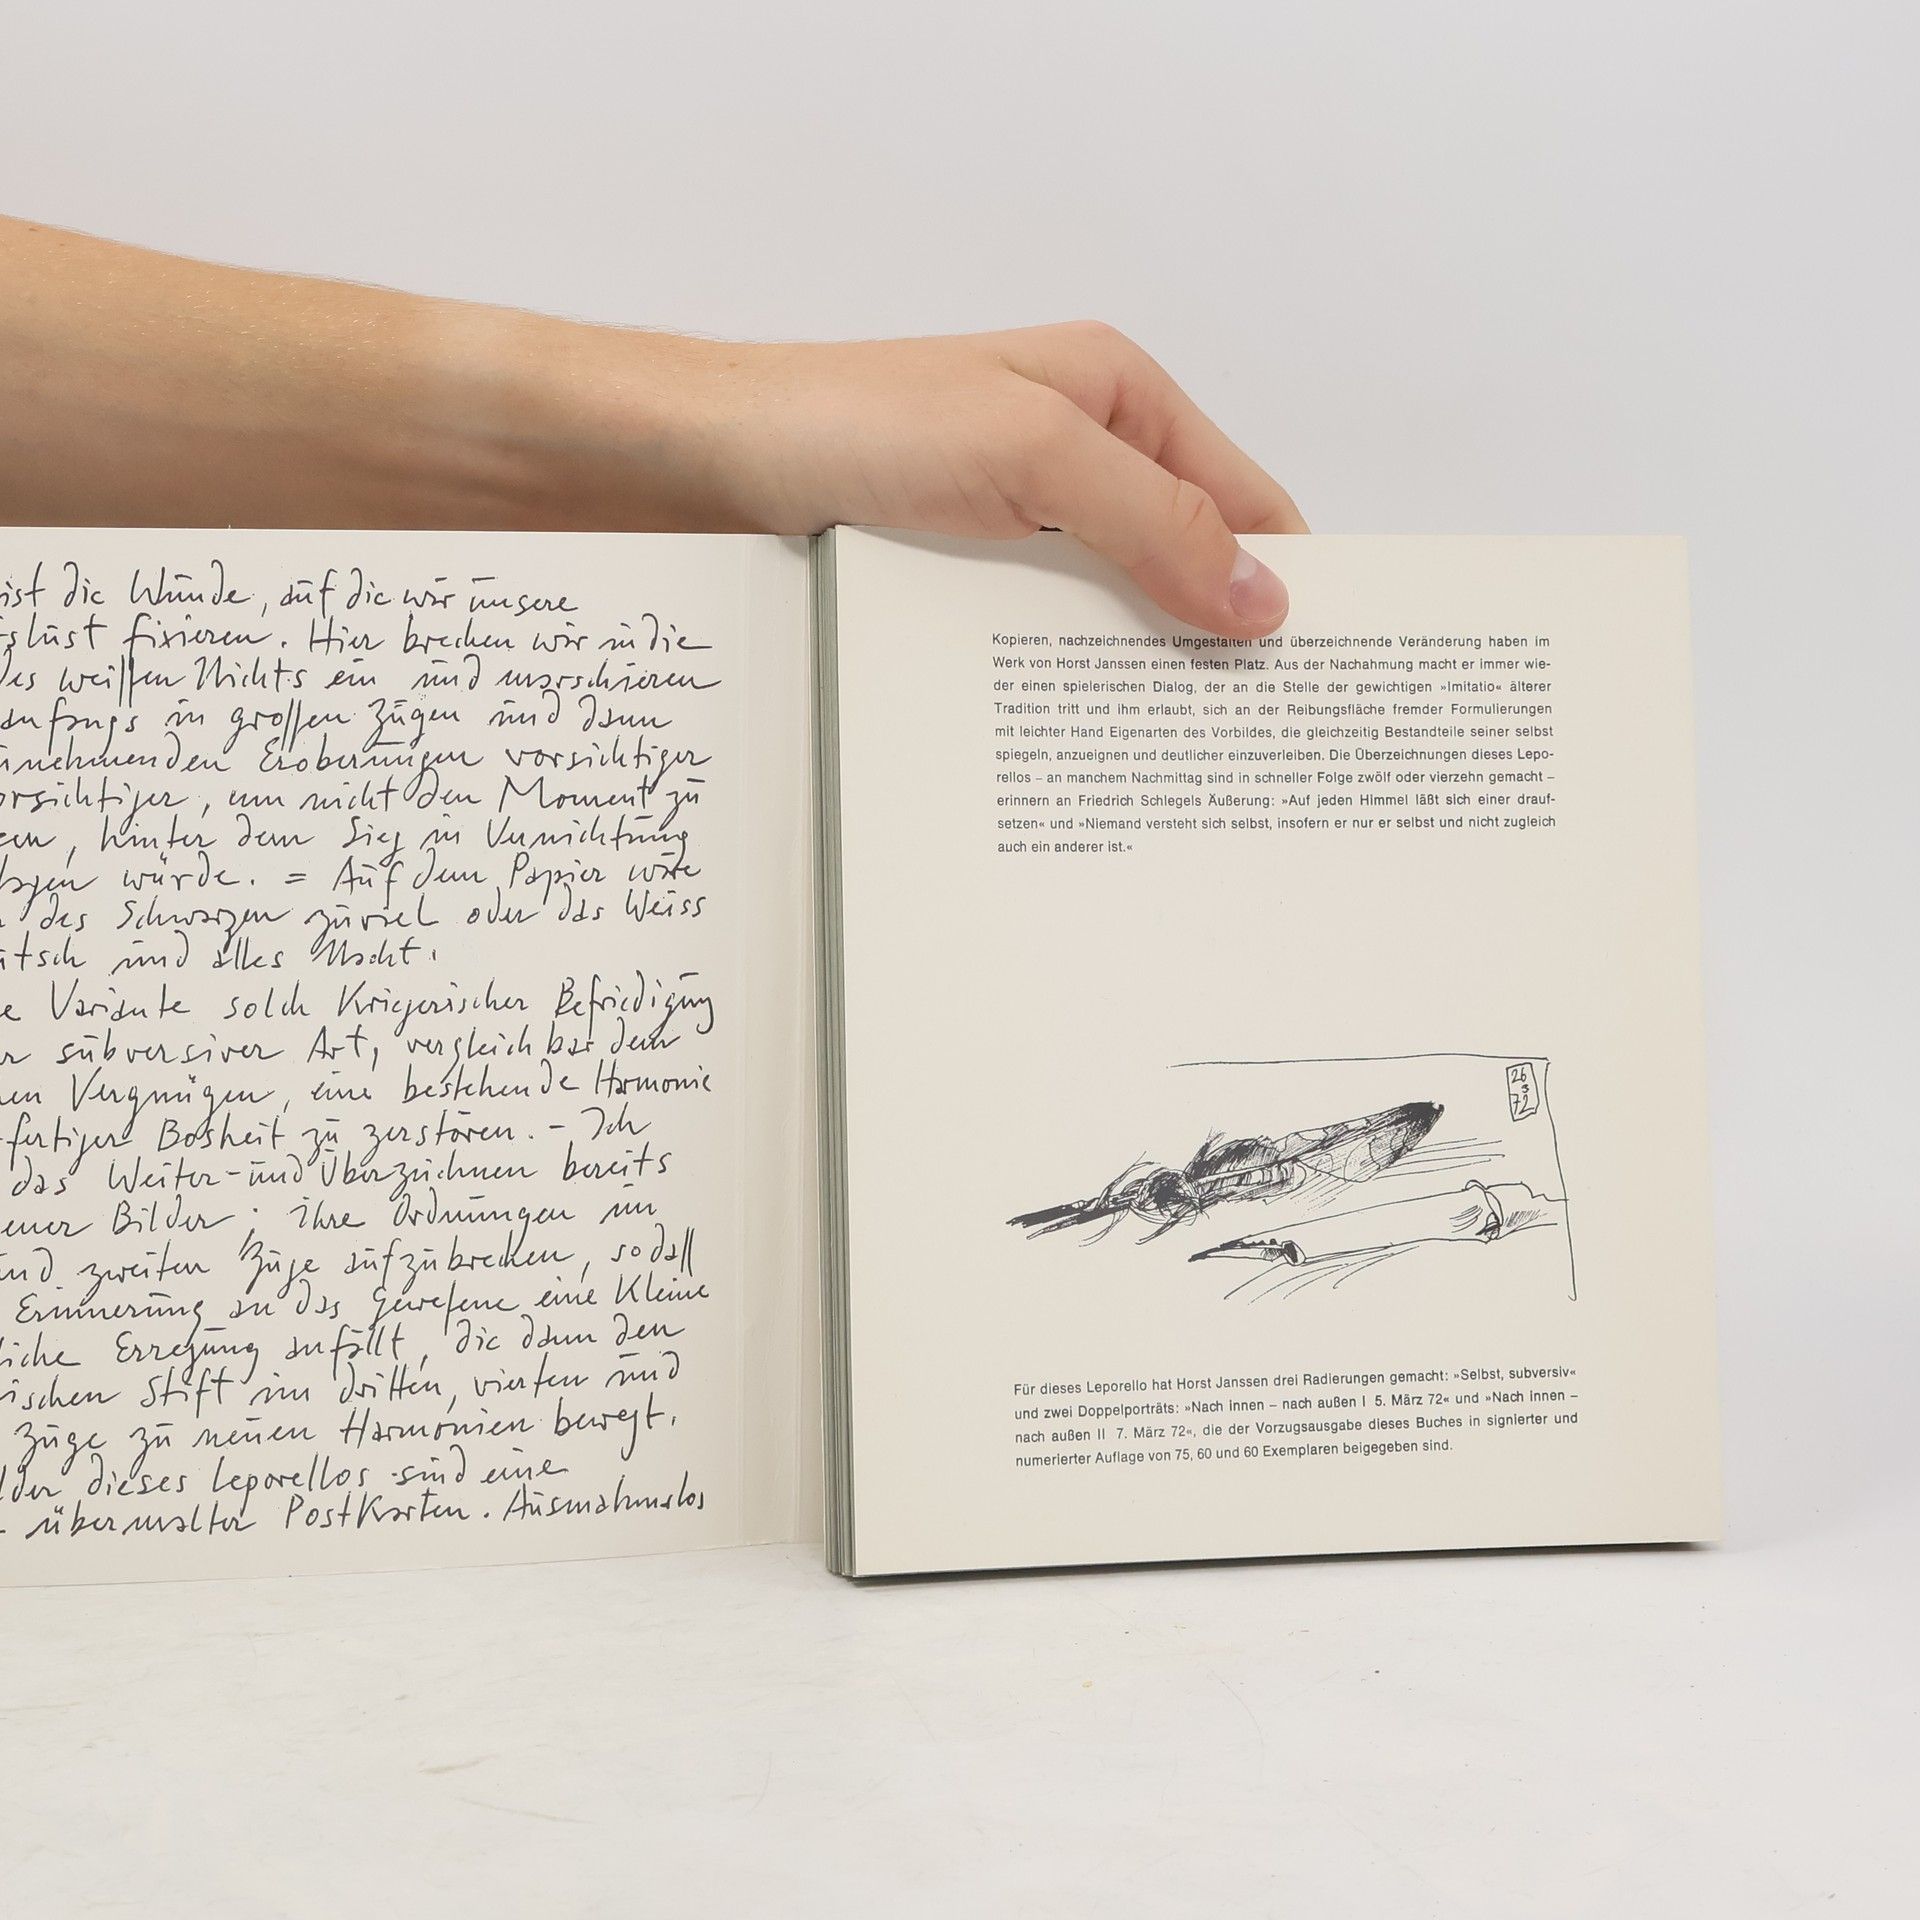 ist die Wunde, auf die wir unsere
slust fixieren. Hier brechen wir in die
des weißen Nichts ein und marschieren
anfangs in großen Zügen und dann
unehmenden Eroberungen vorsichtiger
orsichtiger, um nicht den Moment zu
hinter dem Sieg in Vernichtung
würde. = Auf dem Papier wäre
des Schwarzen zuviel oder das Weiss
utsch und alles Nacht.
e Variante solch Kriegerischer Befriedigung
er subversiver Art, vergleichbar dem
en Vergnügen, eine bestehende Harmonie
fertiger Bosheit zu zerstören. - Ich
das Weiter- und Überzeichnen bereits
ener Bilder; ihre Ordnungen im
und zweiten Zuge aufzubrechen, sodaß
Erinnerung an das Gewesene eine Kleine
liche Erregung anfällt, die dann den
ischen Stift im dritten, vierten und
Züge zu neuen Harmonien bewegt.
lder dieses Leporellos sind eine
übermalter PostKarten. Ausnahmslos
Kopieren, nachzeichnendes Umgestalten und überzeichnende Veränderung haben im
Werk von Horst Janssen einen festen Platz. Aus der Nachahmung macht er immer wie-
der einen spielerischen Dialog, der an die Stelle der gewichtigen »Imitatio« älterer
Tradition tritt und ihm erlaubt, sich an der Reibungsfläche fremder Formulierungen
mit leichter Hand Eigenarten des Vorbildes, die gleichzeitig Bestandteile seiner selbst
spiegeln, anzueignen und deutlicher einzuverleiben. Die Überzeichnungen dieses Lepo-
rellos – an manchem Nachmittag sind in schneller Folge zwölf oder vierzehn gemacht –
erinnern an Friedrich Schlegels Äußerung: »Auf jeden Himmel läßt sich einer drauf-
setzen« und »Niemand versteht sich selbst, insofern er nur er selbst und nicht zugleich
auch ein anderer ist.«
26
3
72
Für dieses Leporello hat Horst Janssen drei Radierungen gemacht: »Selbst, subversiv«
und zwei Doppelporträts: »Nach innen – nach außen I 5. März 72« und »Nach innen –
nach außen II 7. März 72«, die der Vorzugsausgabe dieses Buches in signierter und
numerierter Auflage von 75, 60 und 60 Exemplaren beigegeben sind.